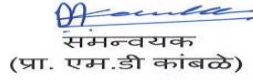 समन्वयक
(प्रा. एम.डी कांबळे)